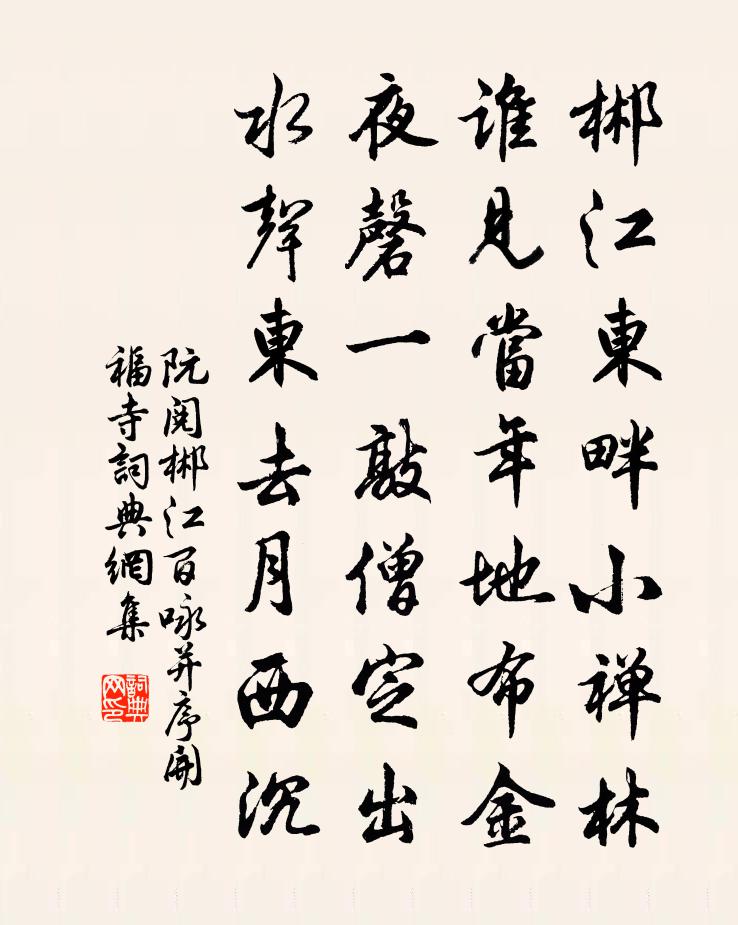 郴江東畔小禅林
誰見當年地布金
夜磬一敲僧定出
水聲東去月西沉
阮閱郴江百咏并序開
福寺詞典網集
詞典网印